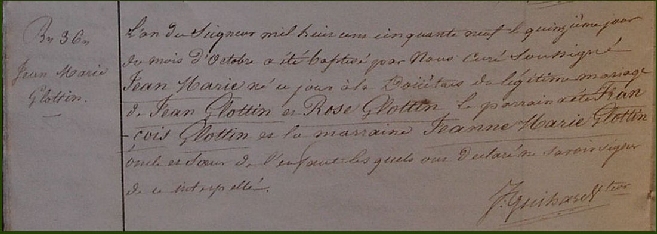 Bs 36.
Jean Marie
Glottin.
L'an du Seigneur mil huit cent cinquante neuf le quinzième jour
du mois d'Octobre a été baptisé par Nous Curé Soussigné
Jean Marie né ce jour à la de légitime mariage
de Jean Glottin et Rose Glottin le parrain a été Fran
-çois Glottin et la marraine Jeanne Marie Glottin
oncle et Sœur de l'enfant lesquels ont Déclaré ne savoir signer
de ce interpellé.
J. Guihard